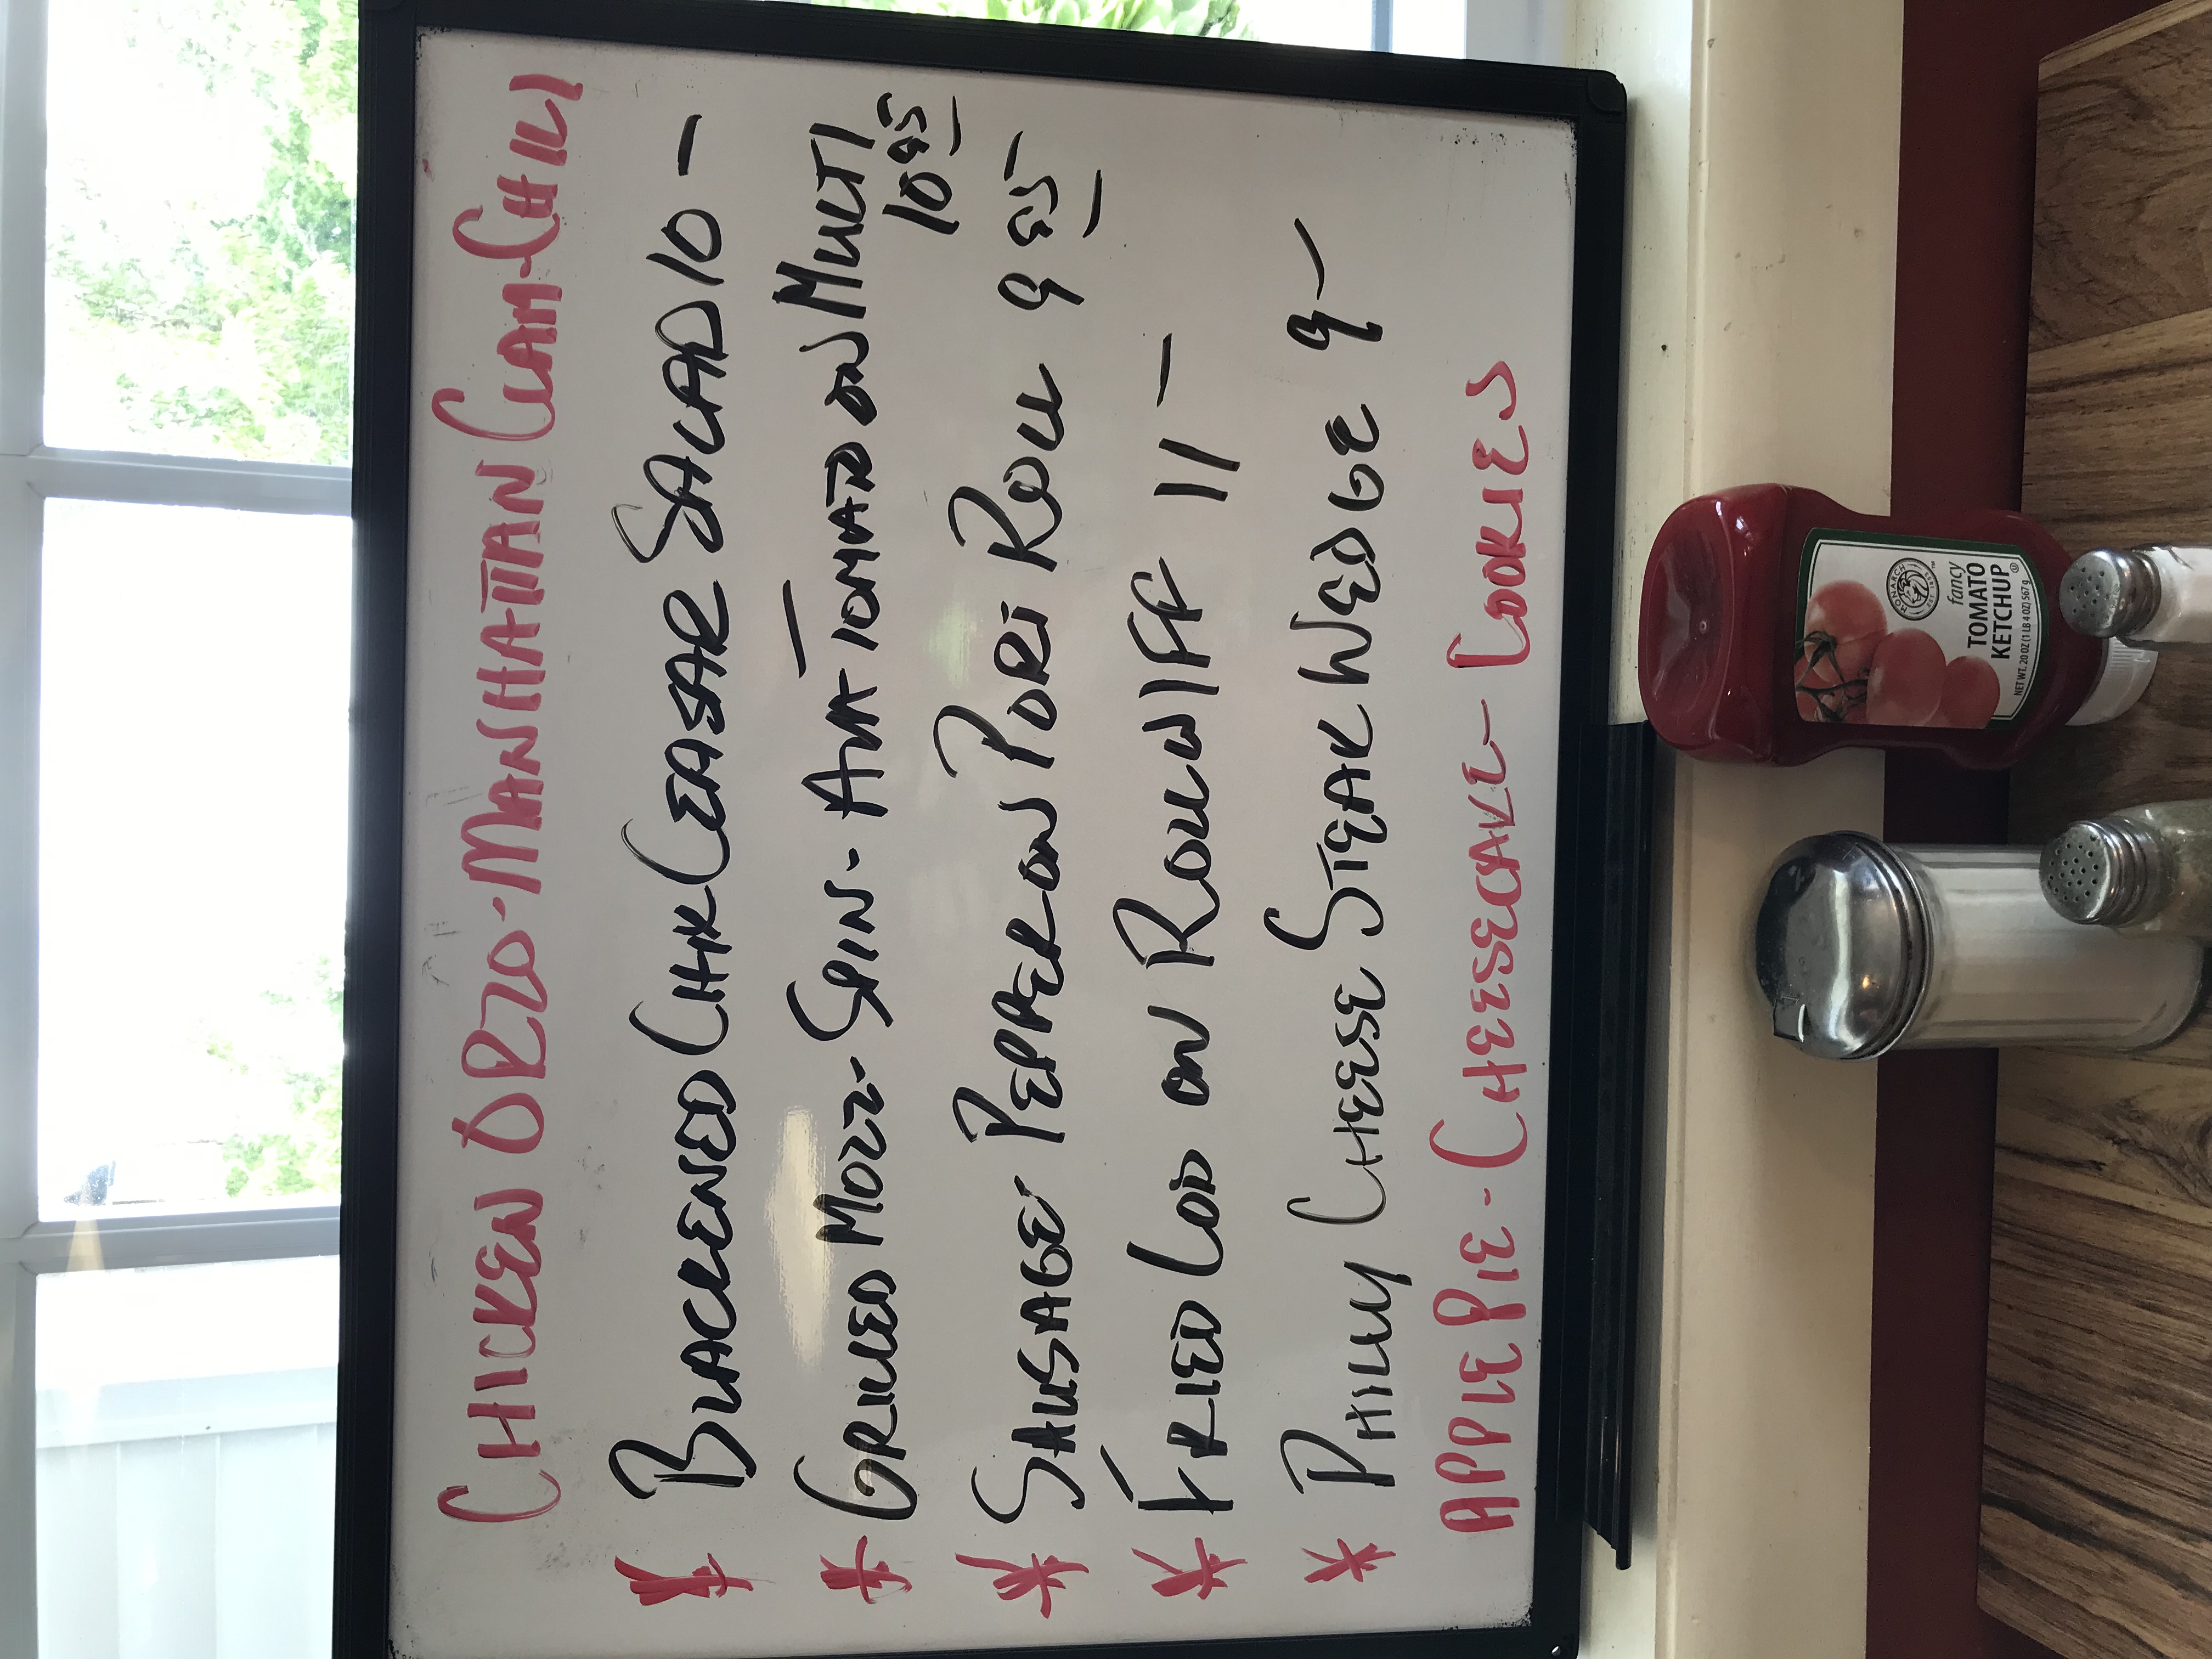 CHICKEN ORZO-MANHATTAN CLAM-CHILI
* BLACKENED CHK CEASAR SALAD 10 -
* GRILLED MOZZ- SPIN- AVA TOMATO ON MULTI
10 95
* SAUSAGE PEPPER ON PORT ROLL 9 85
* FRIED COD ON ROLL W/ FF 11 -
* PHILLY CHEESE STEAK WEDGE 9 -
APPLE PIE - CHEESECAKE - COOKIES
MONARCH
fancy
TOMATO
KETCHUP
NET WT. 20 OZ (1 LB 4 OZ) 567 g